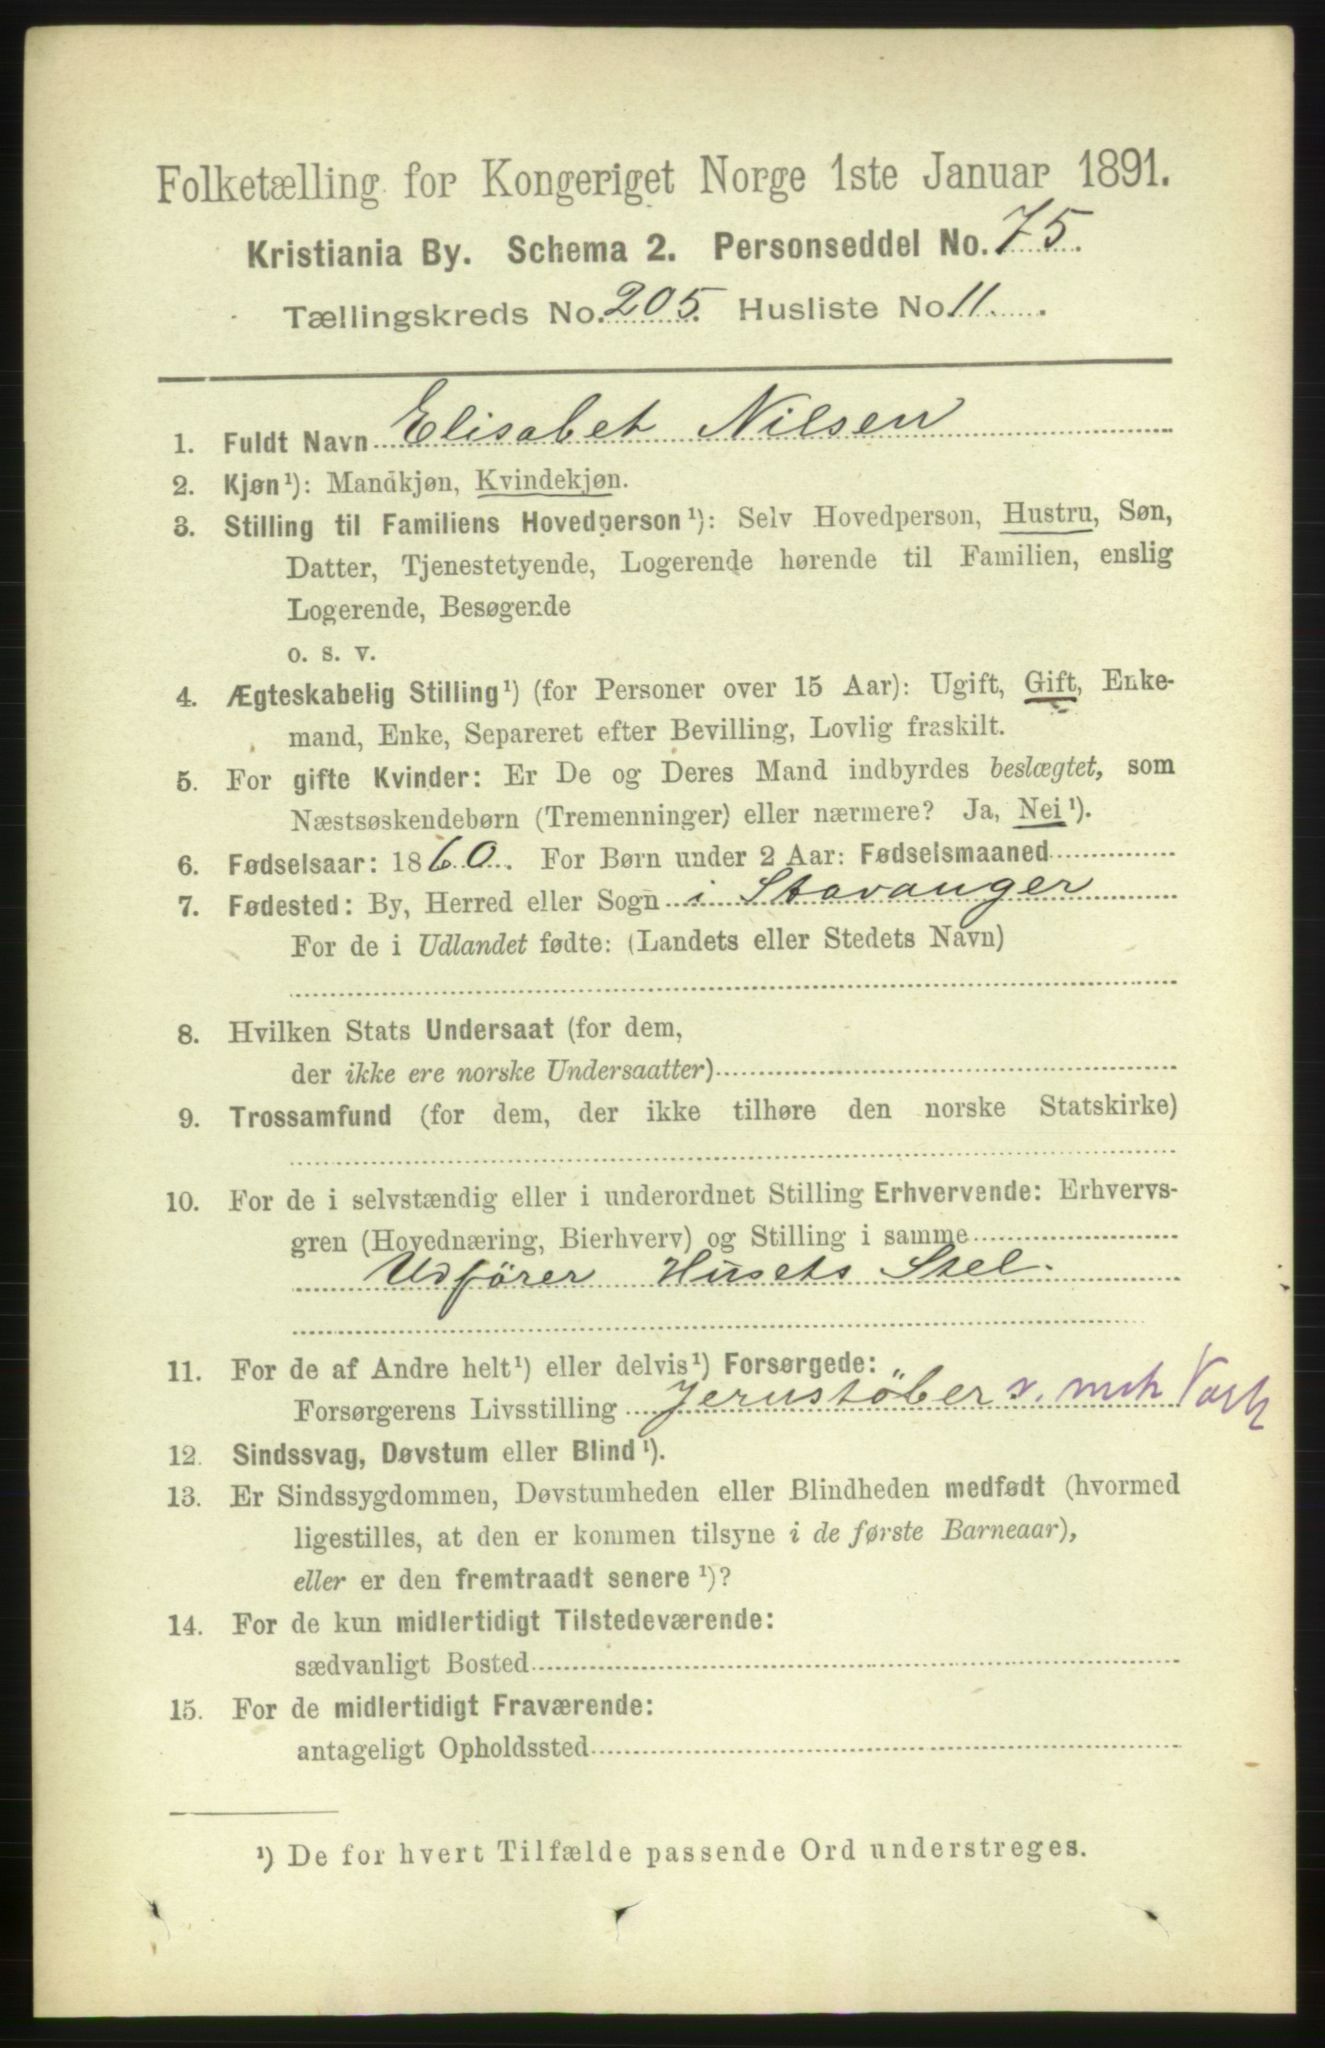 Folketælling for Kongeriget Norge 1ste Januar 1891.
Kristiania By. Schema 2. Personseddel No. 75.
Tællingskreds No. 205. Husliste No 11.
1. Fuldt Navn Elisabet Nilsen
2. Kjøn¹): Mandkjøn, Kvindekjøn.
3. Stilling til Familiens Hovedperson¹): Selv Hovedperson, Hustru, Søn,
Datter, Tjenestetyende, Logerende hørende til Familien, enslig
Logerende, Besøgende
o. s. v.
4. Ægteskabelig Stilling¹) (for Personer over 15 Aar): Ugift, Gift, Enke-
mand, Enke, Separeret efter Bevilling, Lovlig fraskilt.
5. For gifte Kvinder: Er De og Deres Mand indbyrdes beslægtet, som
Næstsøskendebørn (Tremenninger) eller nærmere? Ja, Nei¹).
6. Fødselsaar: 1860. For Børn under 2 Aar: Fødselsmaaned
7. Fødested: By, Herred eller Sogn i Stavanger
For de i Udlandet fødte: (Landets eller Stedets Navn)
8. Hvilken Stats Undersaat (for dem,
der ikke ere norske Undersaatter)
9. Trossamfund (for dem, der ikke tilhøre den norske Statskirke)
10. For de i selvstændig eller i underordnet Stilling Erhvervende: Erhvervs-
gren (Hovednæring, Bierhverv) og Stilling i samme
Udfører Husets Stel.
11. For de af Andre helt¹) eller delvis¹) Forsørgede:
Forsørgerens Livsstilling Jernstöber v. mek Værk
12. Sindssvag, Døvstum eller Blind¹).
13. Er Sindssygdommen, Døvstumheden eller Blindheden medfødt (hvormed
ligestilles, at den er kommen tilsyne i de første Barneaar),
eller er den fremtraadt senere¹)?
14. For de kun midlertidigt Tilstedeværende:
sædvanligt Bosted
15. For de midlertidigt Fraværende:
antageligt Opholdssted
¹) De for hvert Tilfælde passende Ord understreges.